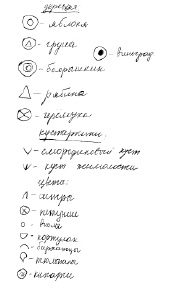 деревья
- яблоня
- груша
- виноград
- боярышник
- рябина
- черемуха
кустарники:
- смородиновый куст
- куст жимолости
цветы:
- астры
- петунии
- виола
- портулак
- бархатцы
- тюльпаны